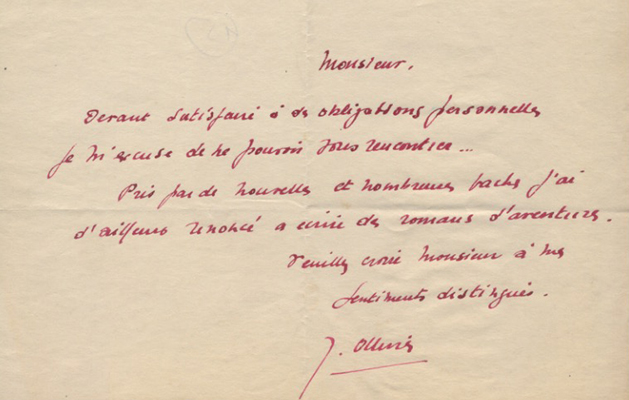 Monsieur,
Devant satisfaire à des obligations personnelles
je m'excuse de ne pouvoir vous rencontrer...
Pris par de nouvelles et nombreuses tâches j'ai
d'ailleurs renoncé a écrire des romans d'aventures.
Veuillez croire Monsieur à mes
sentiments distingués.